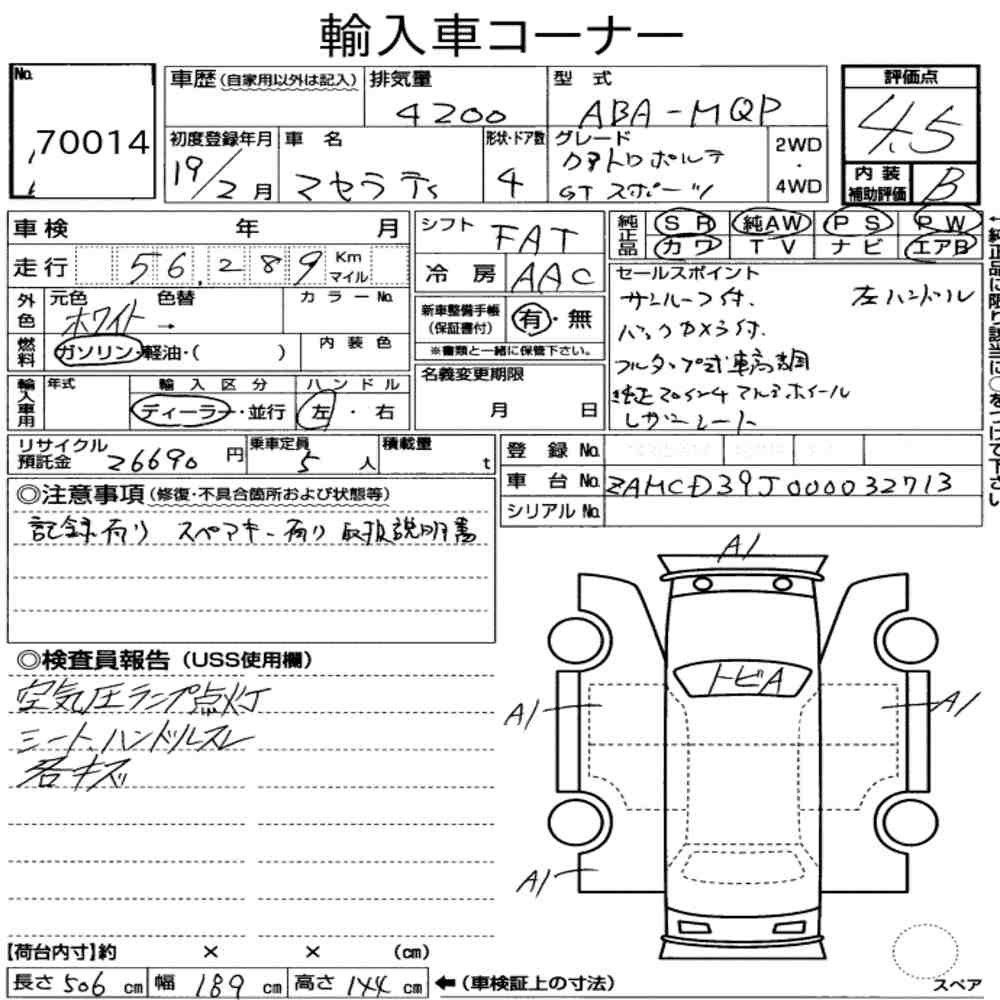 輸入車コーナー
No. 70014
車歴(自家用以外は記入) 排気量 4200 型式 ABA-MQP 評価点 4.5
初度登録年月 19/2月 車名 マセラティ 形状・ドア数 4 グレード クアトロポルテ GT スポーツ 2WD・4WD 内装補助評価 B
車検 年 月
走行 56,289 Km マイル
外色 元色 ホワイト 色替 → カラーNo.
燃料 ガソリン・軽油・( ) 内装色
輸入車用 年式 輸入区分 ディーラー・並行 ハンドル 左・右
シフト FAT
冷房 AAC
新車整備手帳(保証書付) 有・無
※書類と一緒に保管下さい。
名義変更期限 月 日
純正品 SR 純AW PS PW
カワ TV ナビ エアB
←純正品に限り該当に○をつけて下さい
セールスポイント
サンルーフ付. 左ハンドル
バックカメラ付.
フルタップ式車高調
純正20インチアルミホイール
レザーシート
リサイクル預託金 26690円 乗車定員 5人 積載量 t
登録No.
車台No. ZAMCD39J000032713
シリアルNo.
◎注意事項(修復・不具合箇所および状態等)
記録有り スペアキー有り 取扱説明書
◎検査員報告(USS使用欄)
空気圧ランプ点灯
シート、ハンドルスレ
若キズ
A1
トビA
A1
A1
A1
スペア
【荷台内寸】約 × × (cm)
長さ 506 cm 幅 189 cm 高さ 144 cm ←(車検証上の寸法)